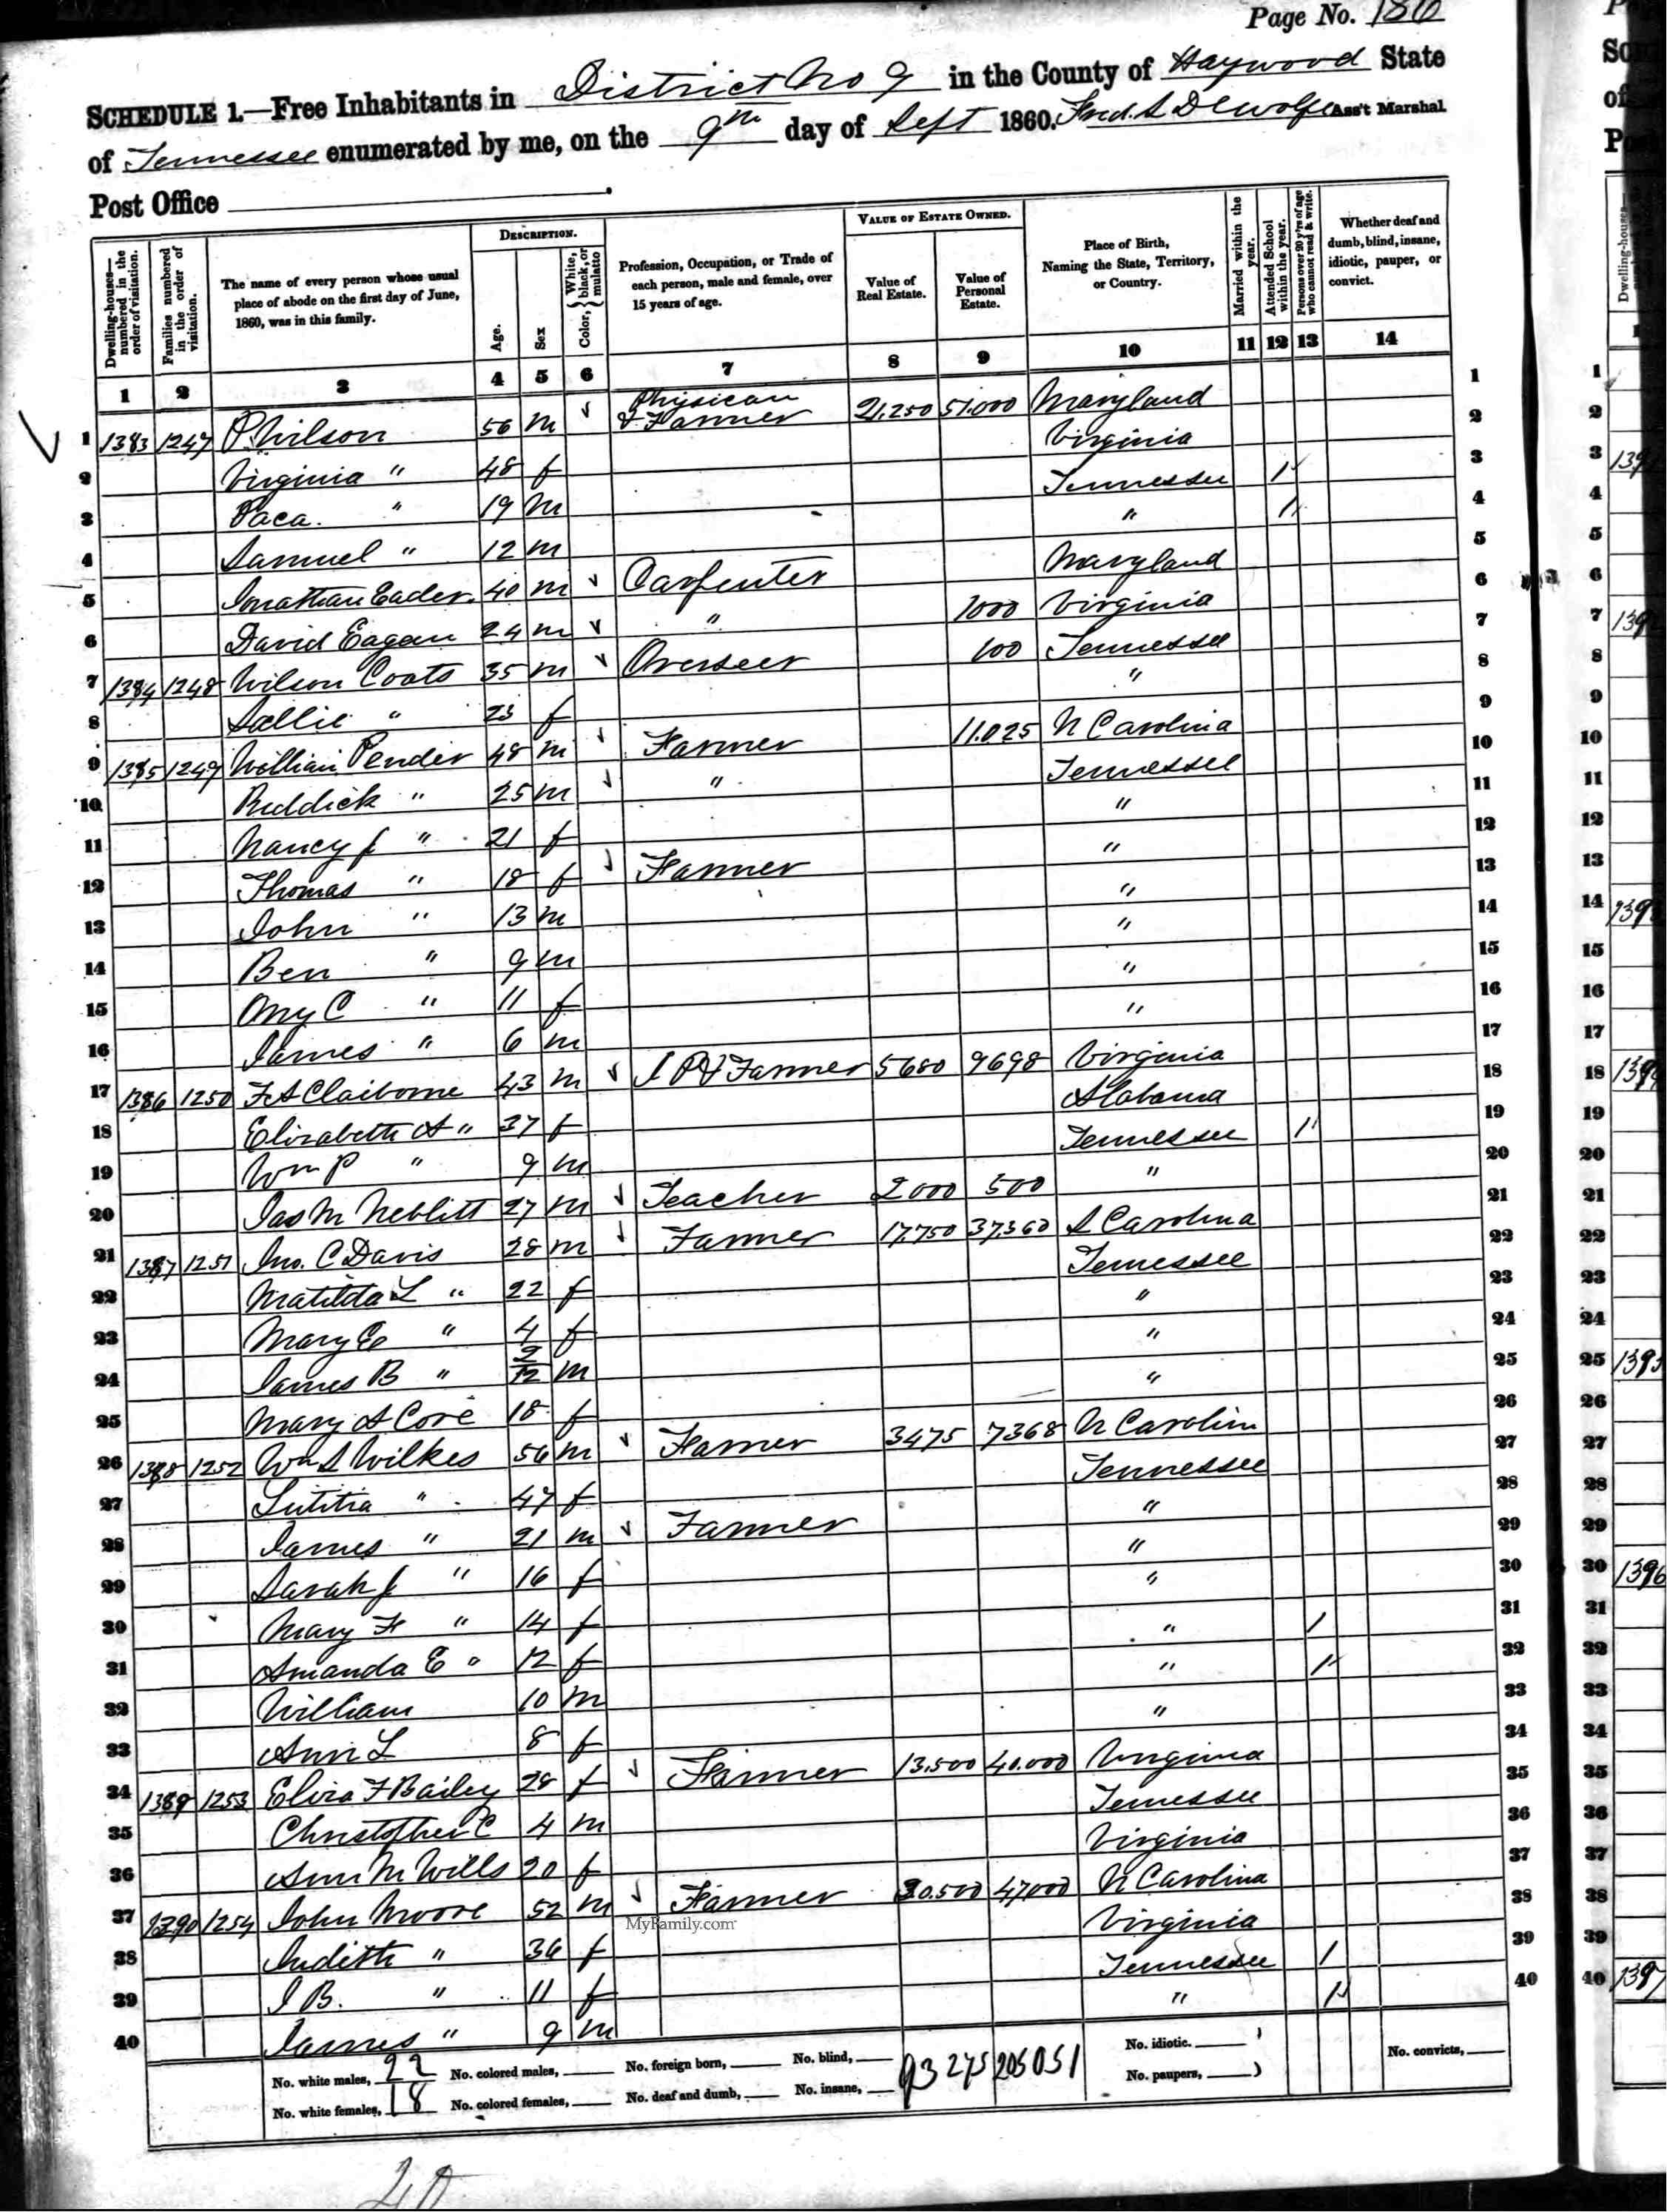 Page No. 186
SCHEDULE 1.—Free Inhabitants in District No 9 in the County of Haywood State
of Tennessee enumerated by me, on the 9th day of Sept 1860. Fred. S DeWolfe Ass't Marshal
Post Office
Dwelling-houses—numbered in the order of visitation.
Families numbered in the order of visitation.
The name of every person whose usual place of abode on the first day of June, 1860, was in this family.
DESCRIPTION.
Age.
Sex
Color, { White, black, or mulatto
Profession, Occupation, or Trade of each person, male and female, over 15 years of age.
VALUE OF ESTATE OWNED.
Value of Real Estate.
Value of Personal Estate.
Place of Birth, Naming the State, Territory, or Country.
Married within the year.
Attended School within the year.
Persons over 20 y'rs of age who cannot read & write.
Whether deaf and dumb, blind, insane, idiotic, pauper, or convict.
1 2 3 4 5 6 7 8 9 10 11 12 13 14
1 1383 1247 P. Wilson 56 m Physican & Farmer 21,250 51,000 Maryland 1
2 Virginia " 48 f Virginia 2
3 Paca " 19 m Tennessee 1 3
4 Samuel " 12 m " 1 4
5 Jonathan Eader 40 m Carpenter Maryland 5
6 David Eagan 24 m " 1000 Virginia 6
7 1384 1248 Wilson Coats 35 m Overseer 100 Tennessee 7
8 Sallie " 23 f " 8
9 1385 1249 William Pender 48 m Farmer 11.025 N Carolina 9
10 Riddick " 25 m " Tennessee 10
11 Nancy J " 21 f " 11
12 Thomas " 18 f Farmer " 12
13 John " 13 m " 13
14 Ben " 9 m " 14
15 Ony C " 11 f " 15
16 James " 6 m " 16
17 1386 1250 F A Claiborne 43 m J P & Farmer 5680 9698 Virginia 17
18 Elizabeth A " 37 f Alabama 18
19 Wm P " 9 m Tennessee 1 19
20 Jas M Neblitt 27 m Teacher 2000 500 " 20
21 1387 1251 Jno. C Davis 28 m Farmer 17,750 37,360 S Carolina 21
22 Matilda L " 22 f Tennessee 22
23 Mary E " 4 f " 23
24 James B " 2/12 m " 24
25 Mary A Core 18 f " 25
26 1388 1252 Wm S Wilkes 56 m Farmer 3475 7368 N Carolin 26
27 Lutitia " 47 f Tennessee 27
28 James " 21 m Farmer " 28
29 Sarah J " 16 f " 29
30 Mary F " 14 f " 30
31 Amanda E " 12 f " 1 31
32 William 10 m " 1 32
33 Ann L 8 f " 33
34 1389 1253 Eliza F Bailey 28 f Farmer 13,500 40.000 Virginia 34
35 Christopher C 4 m Tennessee 35
36 Ann M Wills 20 f Virginia 36
37 1390 1254 John Moore 52 m Farmer 30,500 47,000 N Carolina 37
38 Judith " 36 f Virginia 38
39 J B. " 11 f Tennessee 1 39
40 James " 9 m " 1 40
No. white males, 22 No. colored males, No. foreign born, No. blind, 93 275 205051 No. idiotic. No. convicts,
No. white females, 18 No. colored females, No. deaf and dumb, No. insane, No. paupers,
MyFamily.com
40